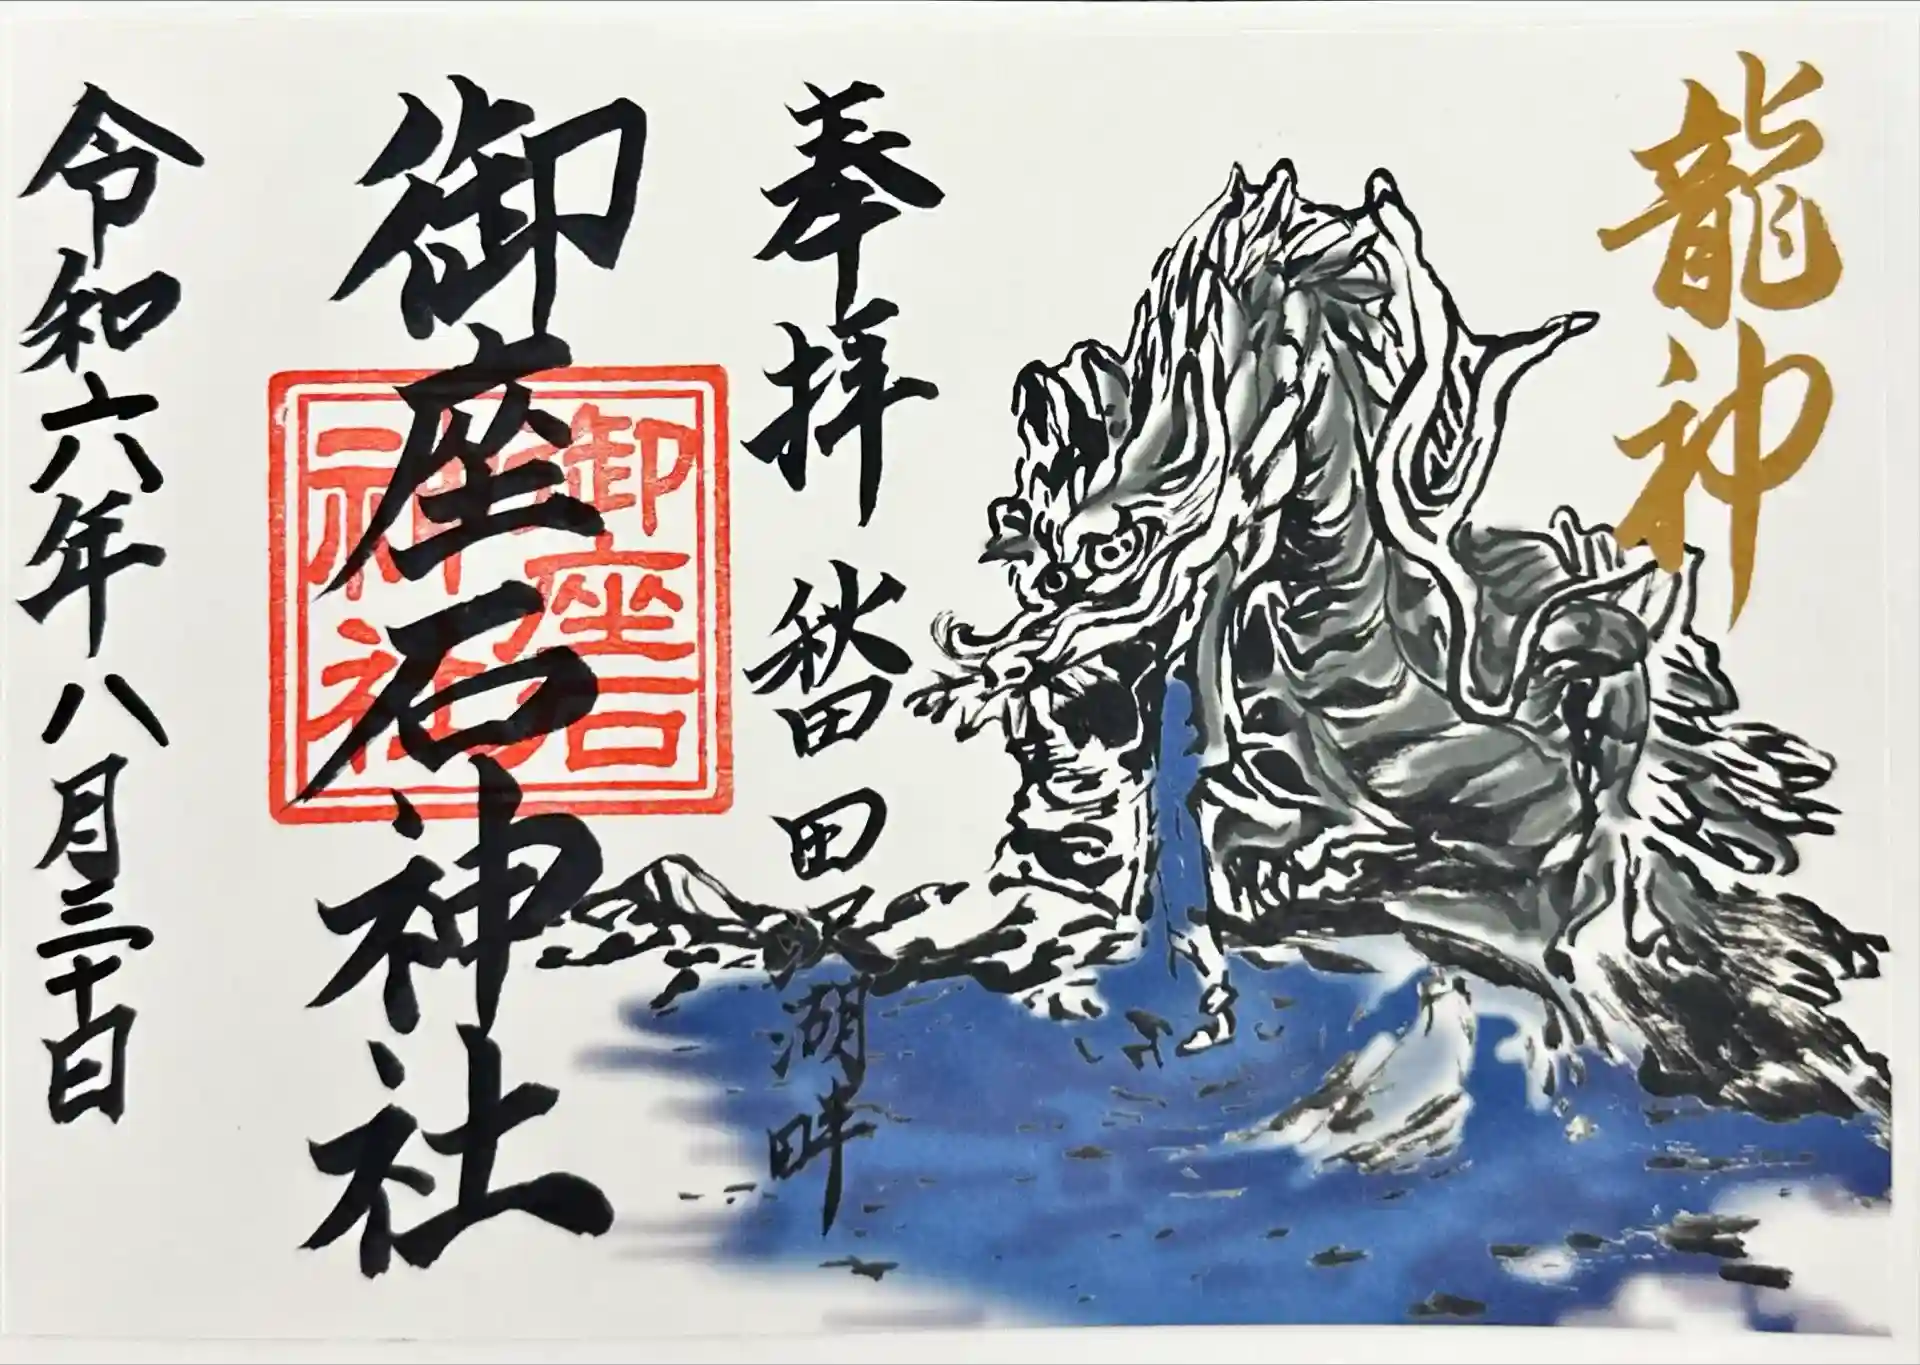 龍神
奉拝 秋田 田沢湖畔
御座石神社
御座石
神社
令和六年八月三十日